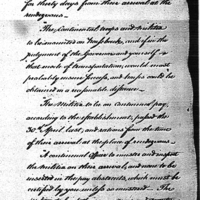 for thirty days from their arrival at the
rendezvous.
The Continental troops and Militia
to be mounted on horseback, and if in the
judgement of the Governor and yourself
that mode of transportation, would most
probably insure success, and troops could be
obtained in a reasonable distance.
The Militia to be on continental pay,
according to the establishment, passed the
30th April last, and rations from the time
of their arrival at the place of rendezvous.
A continental officer to muster and inspect
the Militia on their arrival, and
inserted in the pay abstracts, which must be
certified by
The